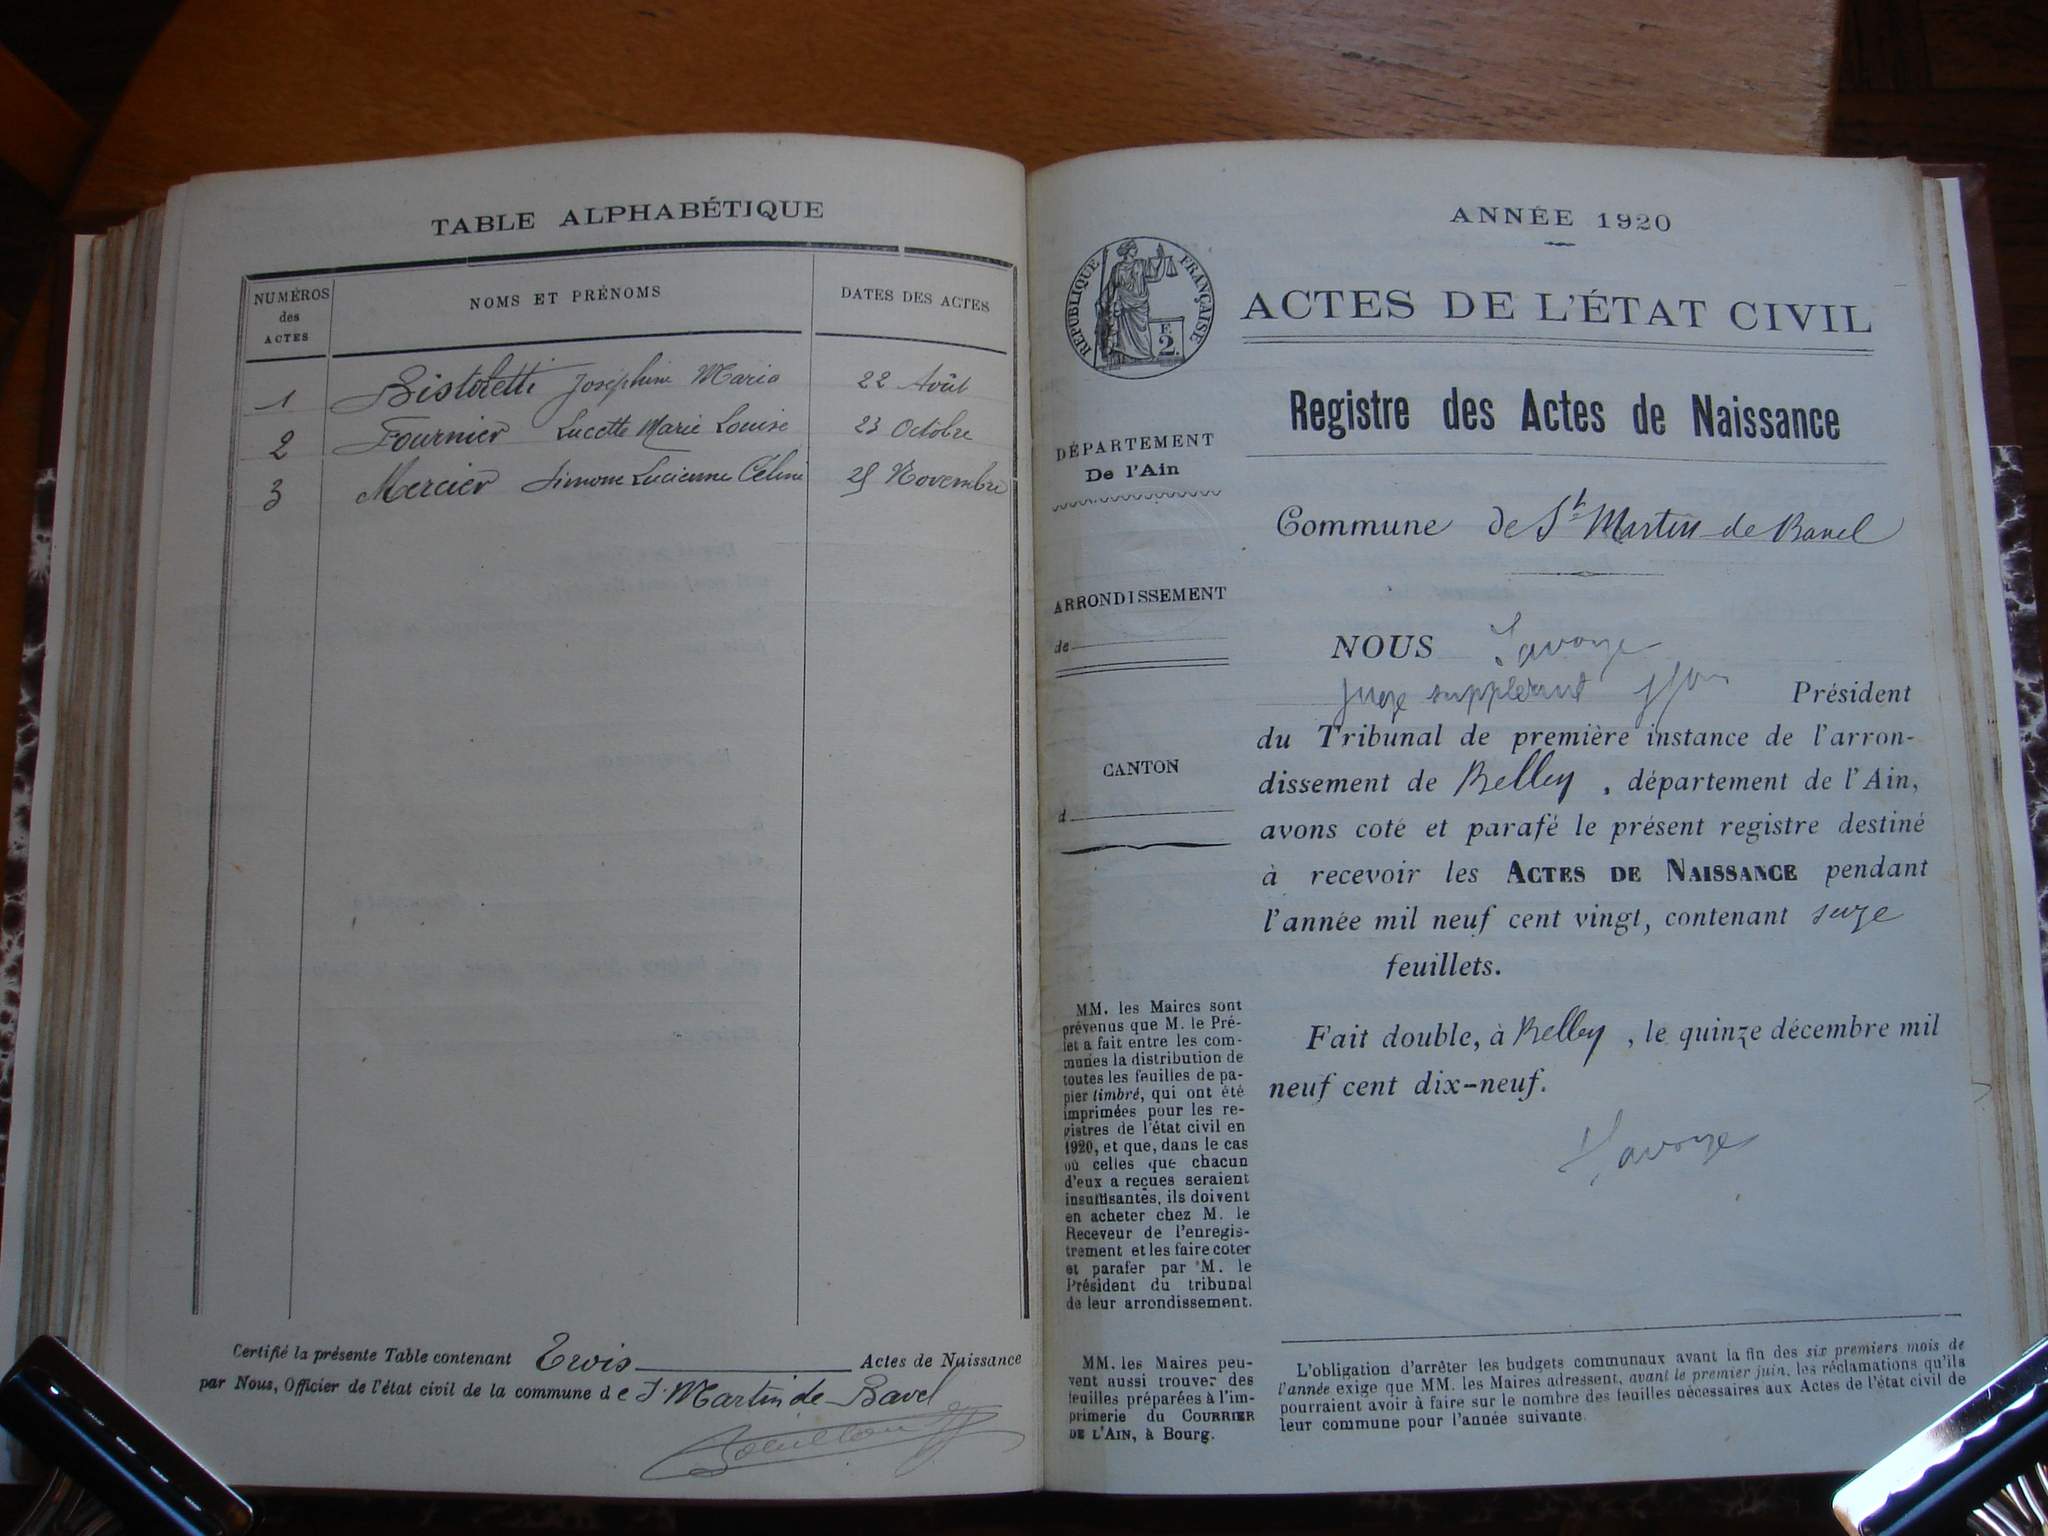 TABLE ALPHABÉTIQUE
NUMÉROS des ACTES
NOMS ET PRÉNOMS
DATES DES ACTES
1 Bistoletti Joséphine Maria 22 Août
2 Fournier Lucette Marie Louise 23 Octobre
3 Mercier Simone Lucienne Céline 25 Novembre
Certifié la présente Table contenant Trois Actes de Naissance
par Nous, Officier de l'état civil de la commune de St Martin de Bavel
ANNÉE 1920
RÉPUBLIQUE FRANÇAISE
F.
2.
ACTES DE L'ÉTAT CIVIL
Registre des Actes de Naissance
DÉPARTEMENT
De l'Ain
Commune de St Martin de Bavel
ARRONDISSEMENT
de
CANTON
d
NOUS Savoye
Juge suppléant Président
du Tribunal de première instance de l'arron-
dissement de Belley, département de l'Ain,
avons coté et parafé le présent registre destiné
à recevoir les ACTES DE NAISSANCE pendant
l'année mil neuf cent vingt, contenant seize
feuillets.
Fait double, à Belley, le quinze décembre mil
neuf cent dix-neuf.
Savoye
MM. les Maires sont
prévenus que M. le Pré-
fet a fait entre les com-
munes la distribution de
toutes les feuilles de pa-
pier timbré, qui ont été
imprimées pour les re-
gistres de l'état civil en
1920, et que, dans le cas
où celles que chacun
d'eux a reçues seraient
insuffisantes, ils doivent
en acheter chez M. le
Receveur de l'enregis-
trement et les faire coter
et parafer par M. le
Président du tribunal
de leur arrondissement.
MM. les Maires peu-
vent aussi trouver des
feuilles préparées à l'im-
primerie du COURRIER
DE L'AIN, à Bourg.
L'obligation d'arrêter les budgets communaux avant la fin des six premiers mois de
l'année exige que MM. les Maires adressent, avant le premier juin, les réclamations qu'ils
pourraient avoir à faire sur le nombre des feuilles nécessaires aux Actes de l'état civil de
leur commune pour l'année suivante.